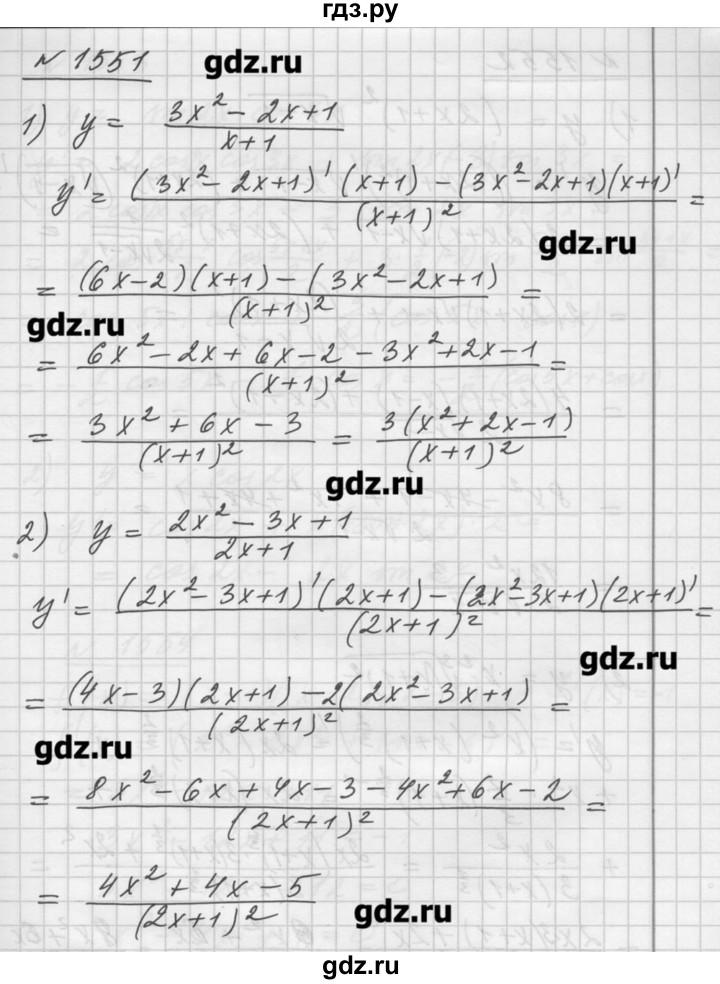 гдз.ру
№ 1551
gdz.ru
1) y = (3x² - 2x + 1)/(x + 1)
y' = ((3x² - 2x + 1)' (x + 1) - (3x² - 2x + 1)(x + 1)')/(x + 1)² =
gdz.ru
= ((6x - 2)(x + 1) - (3x² - 2x + 1))/(x + 1)² =
gdz.ru
= (6x² - 2x + 6x - 2 - 3x² + 2x - 1)/(x + 1)² =
= (3x² + 6x - 3)/(x + 1)² = 3(x² + 2x - 1)/(x + 1)²
gdz.ru
2) y = (2x² - 3x + 1)/(2x + 1)
y' = ((2x² - 3x + 1)' (2x + 1) - (2x² - 3x + 1)(2x + 1)')/(2x + 1)² =
gdz.ru
= ((4x - 3)(2x + 1) - 2(2x² - 3x + 1))/(2x + 1)² =
gdz.ru
= (8x² - 6x + 4x - 3 - 4x² + 6x - 2)/(2x + 1)² =
= (4x² + 4x - 5)/(2x + 1)²
gdz.ru
gdz.ru